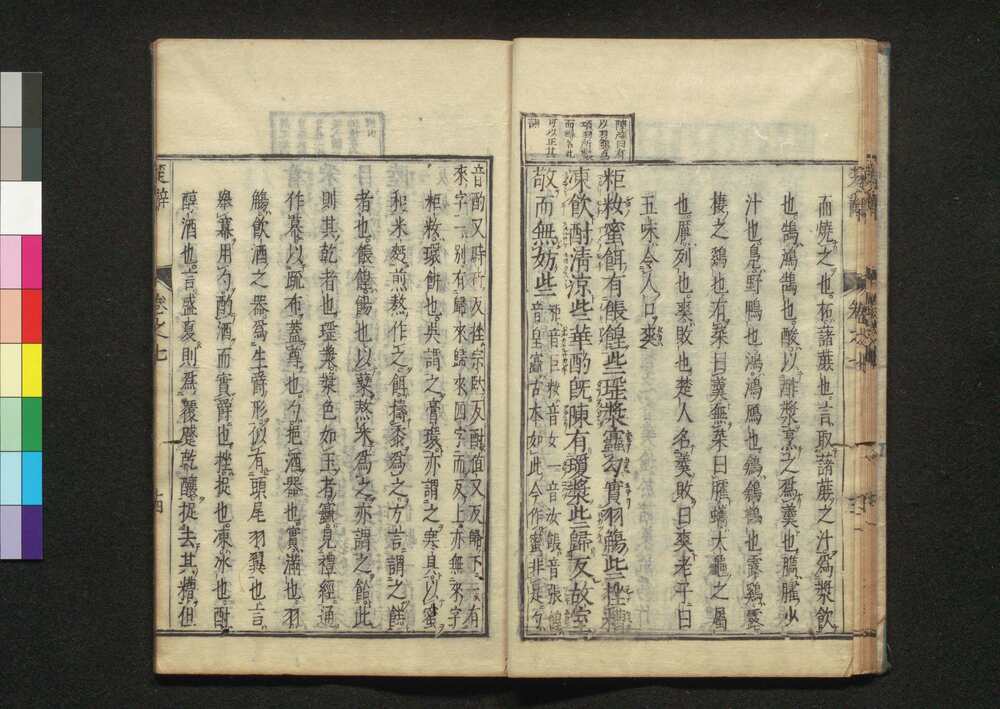 而燒之也柘藷蔗也言取藷蔗之汁爲漿飲
也鵠鴻鵠也酸以酢漿烹之爲羹也臇臛少
汁也鳧野鴨也鴻鴻鴈也鶬鶬鶴也露鷄露
棲之鷄也有菜曰羹無菜曰臛蠵大龜之屬
也厲列也爽敗也楚人名羹敗曰爽老子曰
五味令人口爽
粔籹蜜餌有餦餭些瑤漿蠠勺實羽觴些挫糟
凍飲酎清涼些華酌旣陳有瓊漿些歸反故室
敬而無妨些
粔音巨籹音女一音汝餦音張餭
音皇蠠古本如此今作蜜非是勺
音酌又時斫反挫宗臥反酎値又反歸下一有
來字一別有歸來歸來四字而反上亦無來字
粔籹環餅也吳謂之膏環亦謂之寒具以蜜
和米麪煎熬作之餌擣黍爲之方言謂之餻
者也餦餭餳也以糱熬米爲之亦謂之飴此
則其乾者也瑤漿漿色如玉者蠠見禮經通
作冪以疏布蓋尊也勺挹酒器也實滿也羽
觴飲酒之器爲生爵形似有頭尾羽翼也言
舉冪用勺酌酒而實爵也挫捉也凍冰也酎
醇酒也言盛夏則爲覆蹙乾釀捉去其糟但
楚辭
卷之七
十四